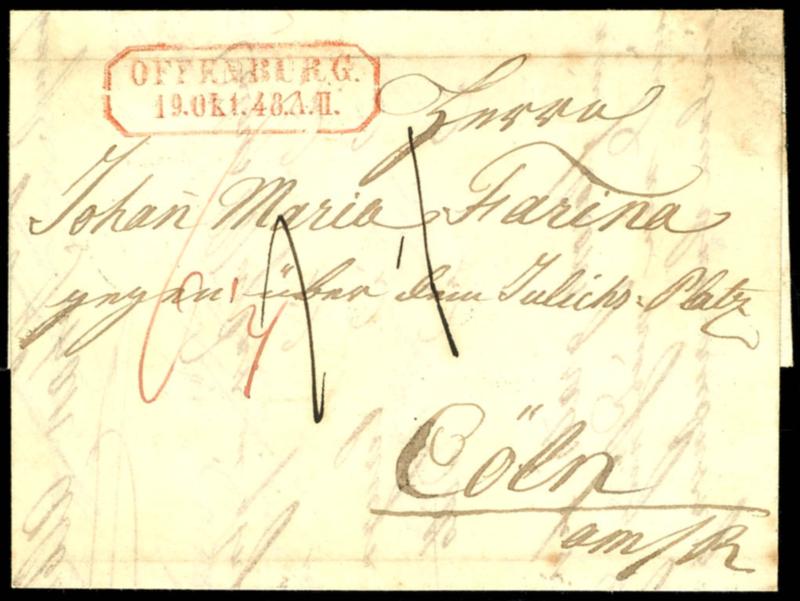 OFFENBURG.
19.Okt.48.A.III.
Herrn
Johañ Maria Farina
gegen über dem Julichs-Platz
Cöln
am/R